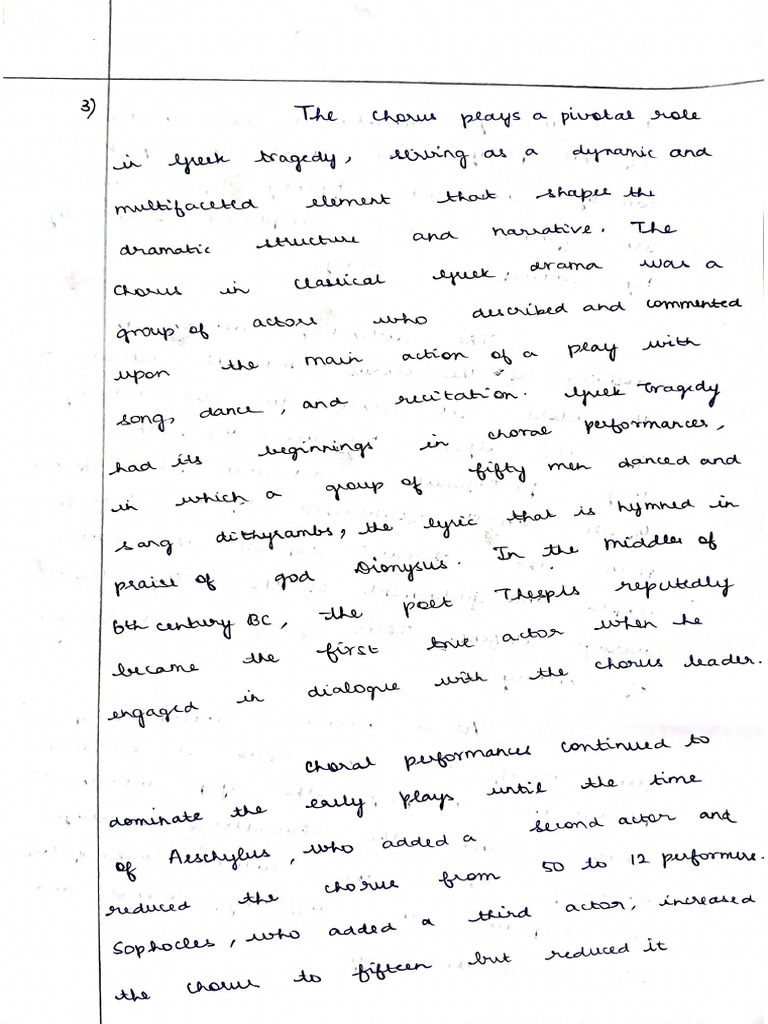 3) The chorus plays a pivotal role
in Greek tragedy, serving as a dynamic and
multifaceted element that shapes the
dramatic structure and narrative. The
chorus in classical Greek drama was a
group of actors who described and commented
upon the main action of a play with
song, dance, and recitation. Greek Tragedy
had its beginnings in choral performances,
in which a group of fifty men danced and
sang dithyrambs, the lyric that is hymned in
praise of god Dionysus. In the middle of
6th century BC, the poet Thespis reputedly
became the first true actor when he
engaged in dialogue with the chorus leader.
Choral performances continued to
dominate the early plays until the time
of Aeschylus, who added a second actor and
reduced the chorus from 50 to 12 performers.
Sophocles, who added a third actor, increased
the chorus to fifteen but reduced it